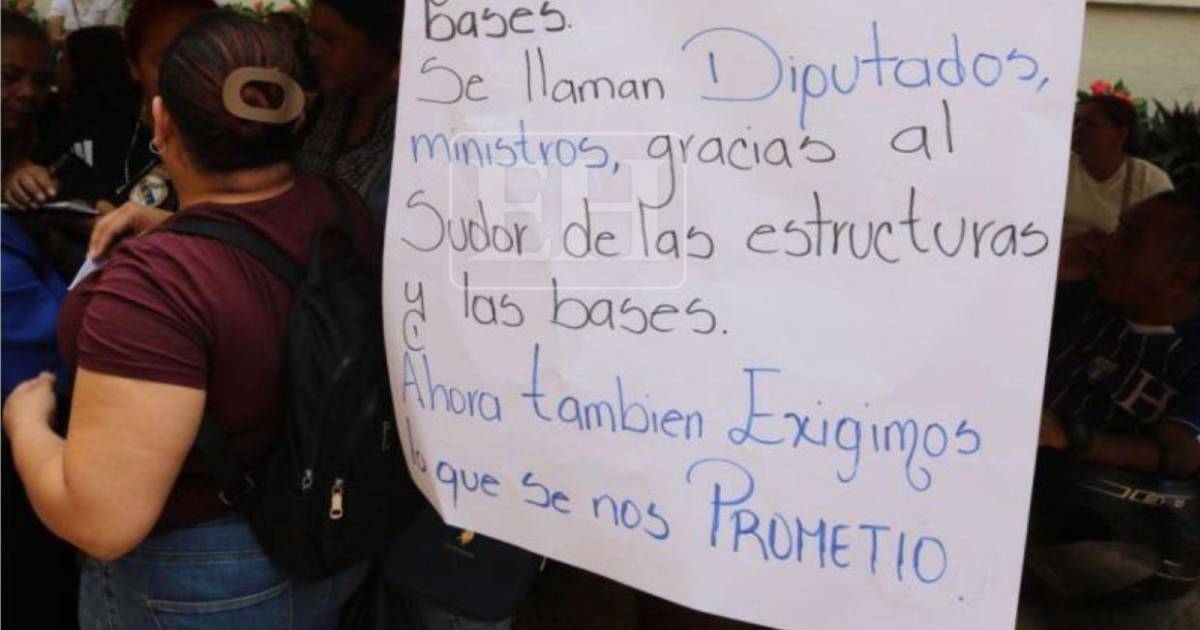 bases.
Se llaman Diputados,
ministros, gracias al
Sudor de las estructuras
y las bases.
Ahora tambien Exigimos
lo que se nos PROMETIO.
EH
H